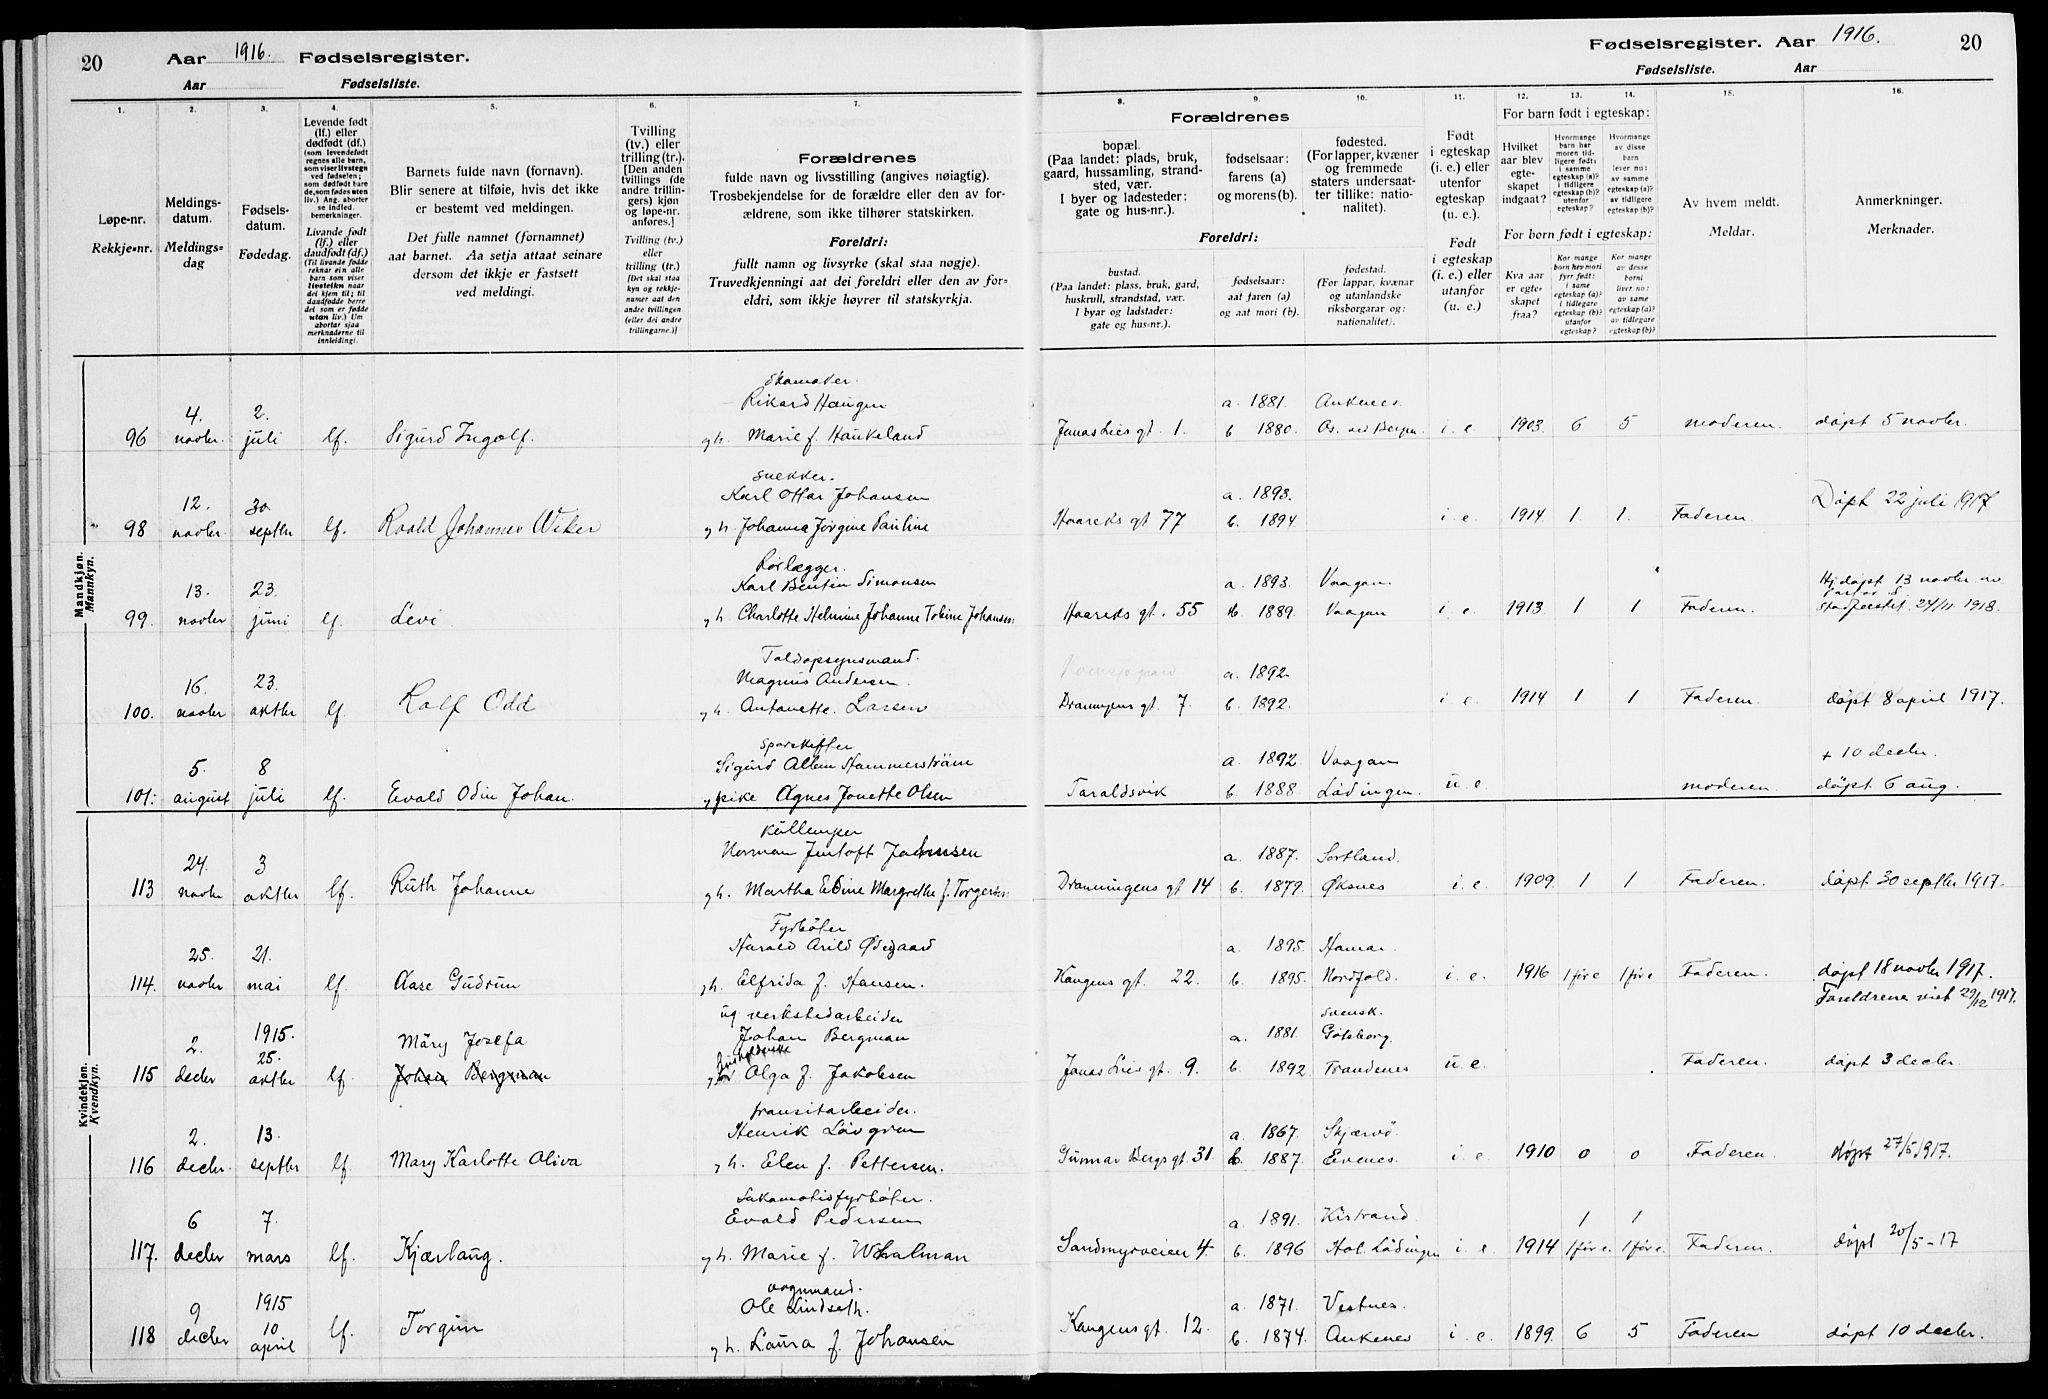 20 Aar 1916. Fødselsregister.
Aar Fødselsliste.
Fødselsregister. Aar 1916. 20
Fødselsliste. Aar
1.
Løpe-nr.
Rekkje-nr.
2.
Meldings-
datum.
Meldings-
dag
3.
Fødsels-
datum.
Fødedag.
4.
Levende født
(lf.) eller
dødfødt (df.)
(som levendefødt
regnes alle barn,
som viser livstegn
ved fødselen;
som dødfødt bare
de, som fødes uten
liv.) Ang. aborter
se indled.
bemerkninger.
Livande født
(lf.) eller
daudfødt (df.)
(Til livande fødde
reknar ein alle
barn som viser
livsteikn naar
dei kjem til; til
daudfødde berre
dei som er fødde
utan liv.) Um
abortar sjaa
merknaderne til
innleidingi.
5.
Barnets fulde navn (fornavn).
Blir senere at tilføie, hvis det ikke
er bestemt ved meldingen.
Det fulle namnet (fornamnet)
aat barnet. Aa setja attaat seinare
dersom det ikkje er fastsett
ved meldingi.
6.
Tvilling
(tv.) eller
trilling (tr.).
[Den anden
tvillings (de
andre trillin-
gers) kjøn
og løpe-nr.
anføres.]
Tvilling (tv.)
eller
trilling (tr.)
[Det skal staa
kyn og rekkje-
numer aat den
andre tvillingen
(eller dei andre
trillingarne.)]
7.
Forældrenes
fulde navn og livsstilling (angives nøiagtig).
Trosbekjendelse for de forældre eller den av for-
ældrene, som ikke tilhører statskirken.
Foreldri:
fullt namn og livsyrke (skal staa nøgje).
Truvedkjenningi aat dei foreldri eller den av for-
eldri, som ikkje høyrer til statskyrkja.
Forældrenes
8.
bopæl.
(Paa landet: plads, bruk,
gaard, hussamling, strand-
sted, vær.
I byer og ladesteder:
gate og hus-nr.).
9.
fødselsaar:
farens (a)
og morens (b).
10.
fødested.
(For lapper, kvæner
og fremmede
staters undersaat-
ter tillike: natio-
nalitet).
Foreldri:
bustad.
(Paa landet: plass, bruk, gard,
huskrull, strandstad, vær.
I byar og ladstader:
gate og hus-nr.).
fødselsaar:
aat faren (a)
og aat mori (b).
fødestad.
(For lappar, kvænar
og utanlandske
riksborgarar og:
nationalitet).
11.
Født
i egteskap
(i. e.) eller
utenfor
egteskap
(u. e.).
Født
i egteskap
(i. e.) eller
utanfor
(u. e.).
12. 13. 14.
For barn født i egteskap:
Hvilket
aar blev
egte-
skapet
indgaat?
Hvormange
barn har
moren tid-
ligere født:
i samme
egteskap (a)?
i tidligere
egteskap (b)?
utenfor
egteskap?
Hvormange
av disse
barn
lever nu:
av samme
egteskap (a)?
av tidligere
egteskap (b)?
For born født i egteskap:
Kva aar
er egte-
skapet
fraa?
Kor mange
born hev mori
fyrr født:
i same
egteskap (a)?
i tidlegare
egteskap (b)?
utanfor
egteskap?
Kor mange
av desse
borni
liver no:
av same
egteskap (a)?
av tidlegare
egteskap (b)?
15.
Av hvem meldt.
Meldar.
16.
Anmerkninger.
Merknader.
Mandkjøn.
Mannkyn.
Skomaker.
4. 2. Rikard Haugen a. 1881. Ankenes.
96 novbr. juli lf. Sigurd Ingolf. gh. Marie f. Haukeland Jonas Lies gt. 1. b 1880. Os. ved Bergen. i. e. 1903. 6 5 moderen. døpt 5 novbr.
snekker.
12. 30. Karl Otlar Johansen a. 1893.
98 novbr. septbr lf. Roald Johannes Wiker gh. Johanna Jørgine Pauline Haareks gt 77 b. 1894 i. e. 1914. 1. 1. Faderen. Døpt 22 juli 1917
Rørlægger.
13. 23. Karl Bentin Simonsen a. 1893. Vaagan.
99. novbr juni lf. Levi. gh. Charlotte Helmine Johanne Tobine Johansen: Haareks gt. 55 b. 1889. Vaagan i. e. 1913. 1 1 Faderen. Hj.døpt 13 novbr av
stadfæstet 24/11 1918.
Toldopsynsmand.
16. 23. Magnus Andersen. a. 1892
100. novbr oktbr lf. Rolf Odd gh. Antonette Larsen Dronningens gt. 7 b. 1892. i. e. 1914 1 1 Faderen. døpt 8 april 1917.
sporskifter
5. 8 Sigurd Allan Hammerstrøm a. 1892. Vaagan + 10 decbr.
101. august juli lf. Evald Odin Johan. pike Agnes Jonette Olsen Taraldsvik b. 1888. Lødingen. u. e. moderen. døpt 6 aug.
Kvindekjøn.
Kvendkyn.
Kullemper
24. 3 Norman Jentoft Johnsen a. 1887. Sortland.
113 novbr oktbr lf. Ruth Johanne gh. Martha Edine Margrethe f. Torgersen: Dronningens gt 14 b. 1879. Øksnes i. e. 1909. 1 1 Faderen. døpt 30 septbr 1917.
Fyrbøter
25. 21. Harald Arild Ødegaard a. 1895. Hamar.
114. novbr mai lf. Aase Gudrun gh. Elfrida f. Hansen. Kongens gt. 22. b. 1895. Nordfold. i. e. 1916 1 før e 1 før e Faderen. døpt 18 novbr 1917.
Foreldrene viet 29/12 1917.
ug verkstedarbeider svensk.
2. 1915. 25. Mary Josefa Johan Bergman a. 1881. Göteborg.
115 decbr oktbr lf. Johan Bergman Olga f. Jakobsen Jonas Lies gt. 9. b. 1892 Trondenes u. e. Faderen. døpt 3 decbr.
transitarbeider.
2. 13. Henrik Løvgren a. 1867. Skjærvø.
116 decbr. septbr lf. Mary Karlotte Oliva gh. Elen f. Pettersen. Gunnar Bergs gt. 31. b. 1887. Evenes. i. e. 1910 0 0 Faderen. døpt 27/5 1917.
Lokomotivfyrbøter.
6 7. Evald Pedersen a. 1891. Kistrand. 1 1
117. decbr mars lf. Kjærlaug. gh. Marie f. Whalman Sandmyrveien 4. b. 1896 Hol. Lødingen i. e. 1914 1 før e. 1 før e. Faderen. døpt 20/5-17
vognmand.
9 1915 10 Ole Lindseth. a. 1871. Vestnes.
118 decbr april lf. Torgun gh. Laura f. Johansen Kongens gt. 12. b. 1874. Ankenes i. e. 1899. 6 5 Faderen døpt 10 decbr.